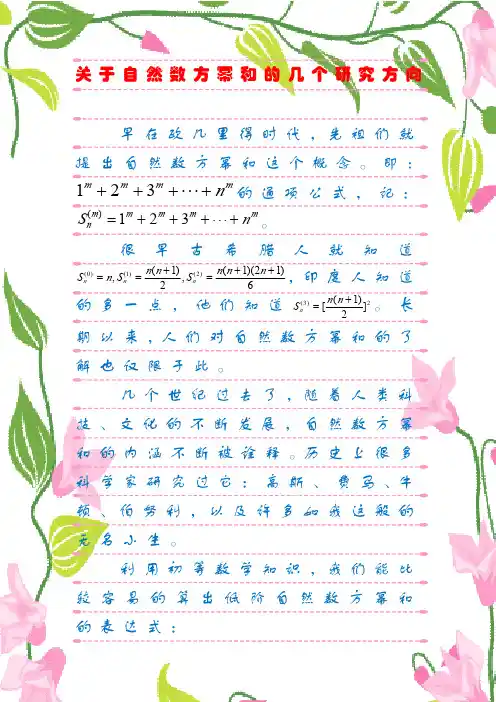 关于自然数方幂和的几个研究方向
早在欧几里得时代，先祖们就
提出自然数方幂和这个概念。即：
1^m + 2^m + 3^m + ⋯ + n^m 的通项公式，记：
S_n^{(m)} = 1^m + 2^m + 3^m + ⋯ + n^m。
很早古希腊人就知道
S_n^{(0)} = n, S_n^{(1)} = \frac{n(n+1)}{2}, S_n^{(2)} = \frac{n(n+1)(2n+1)}{6}，印度人知道
的多一点，他们知道 S_n^{(3)} = [\frac{n(n+1)}{2}]^2。长
期以来，人们对自然数方幂和的了
解也仅限于此。
几个世纪过去了，随着人类科
技、文化的不断发展，自然数方幂
和的内涵不断被诠释。历史上很多
科学家研究过它：高斯、费马、牛
顿、伯努利，以及许多如我这般的
无名小生。
利用初等数学知识，我们能比
较容易的算出低阶自然数方幂和
的表达式：